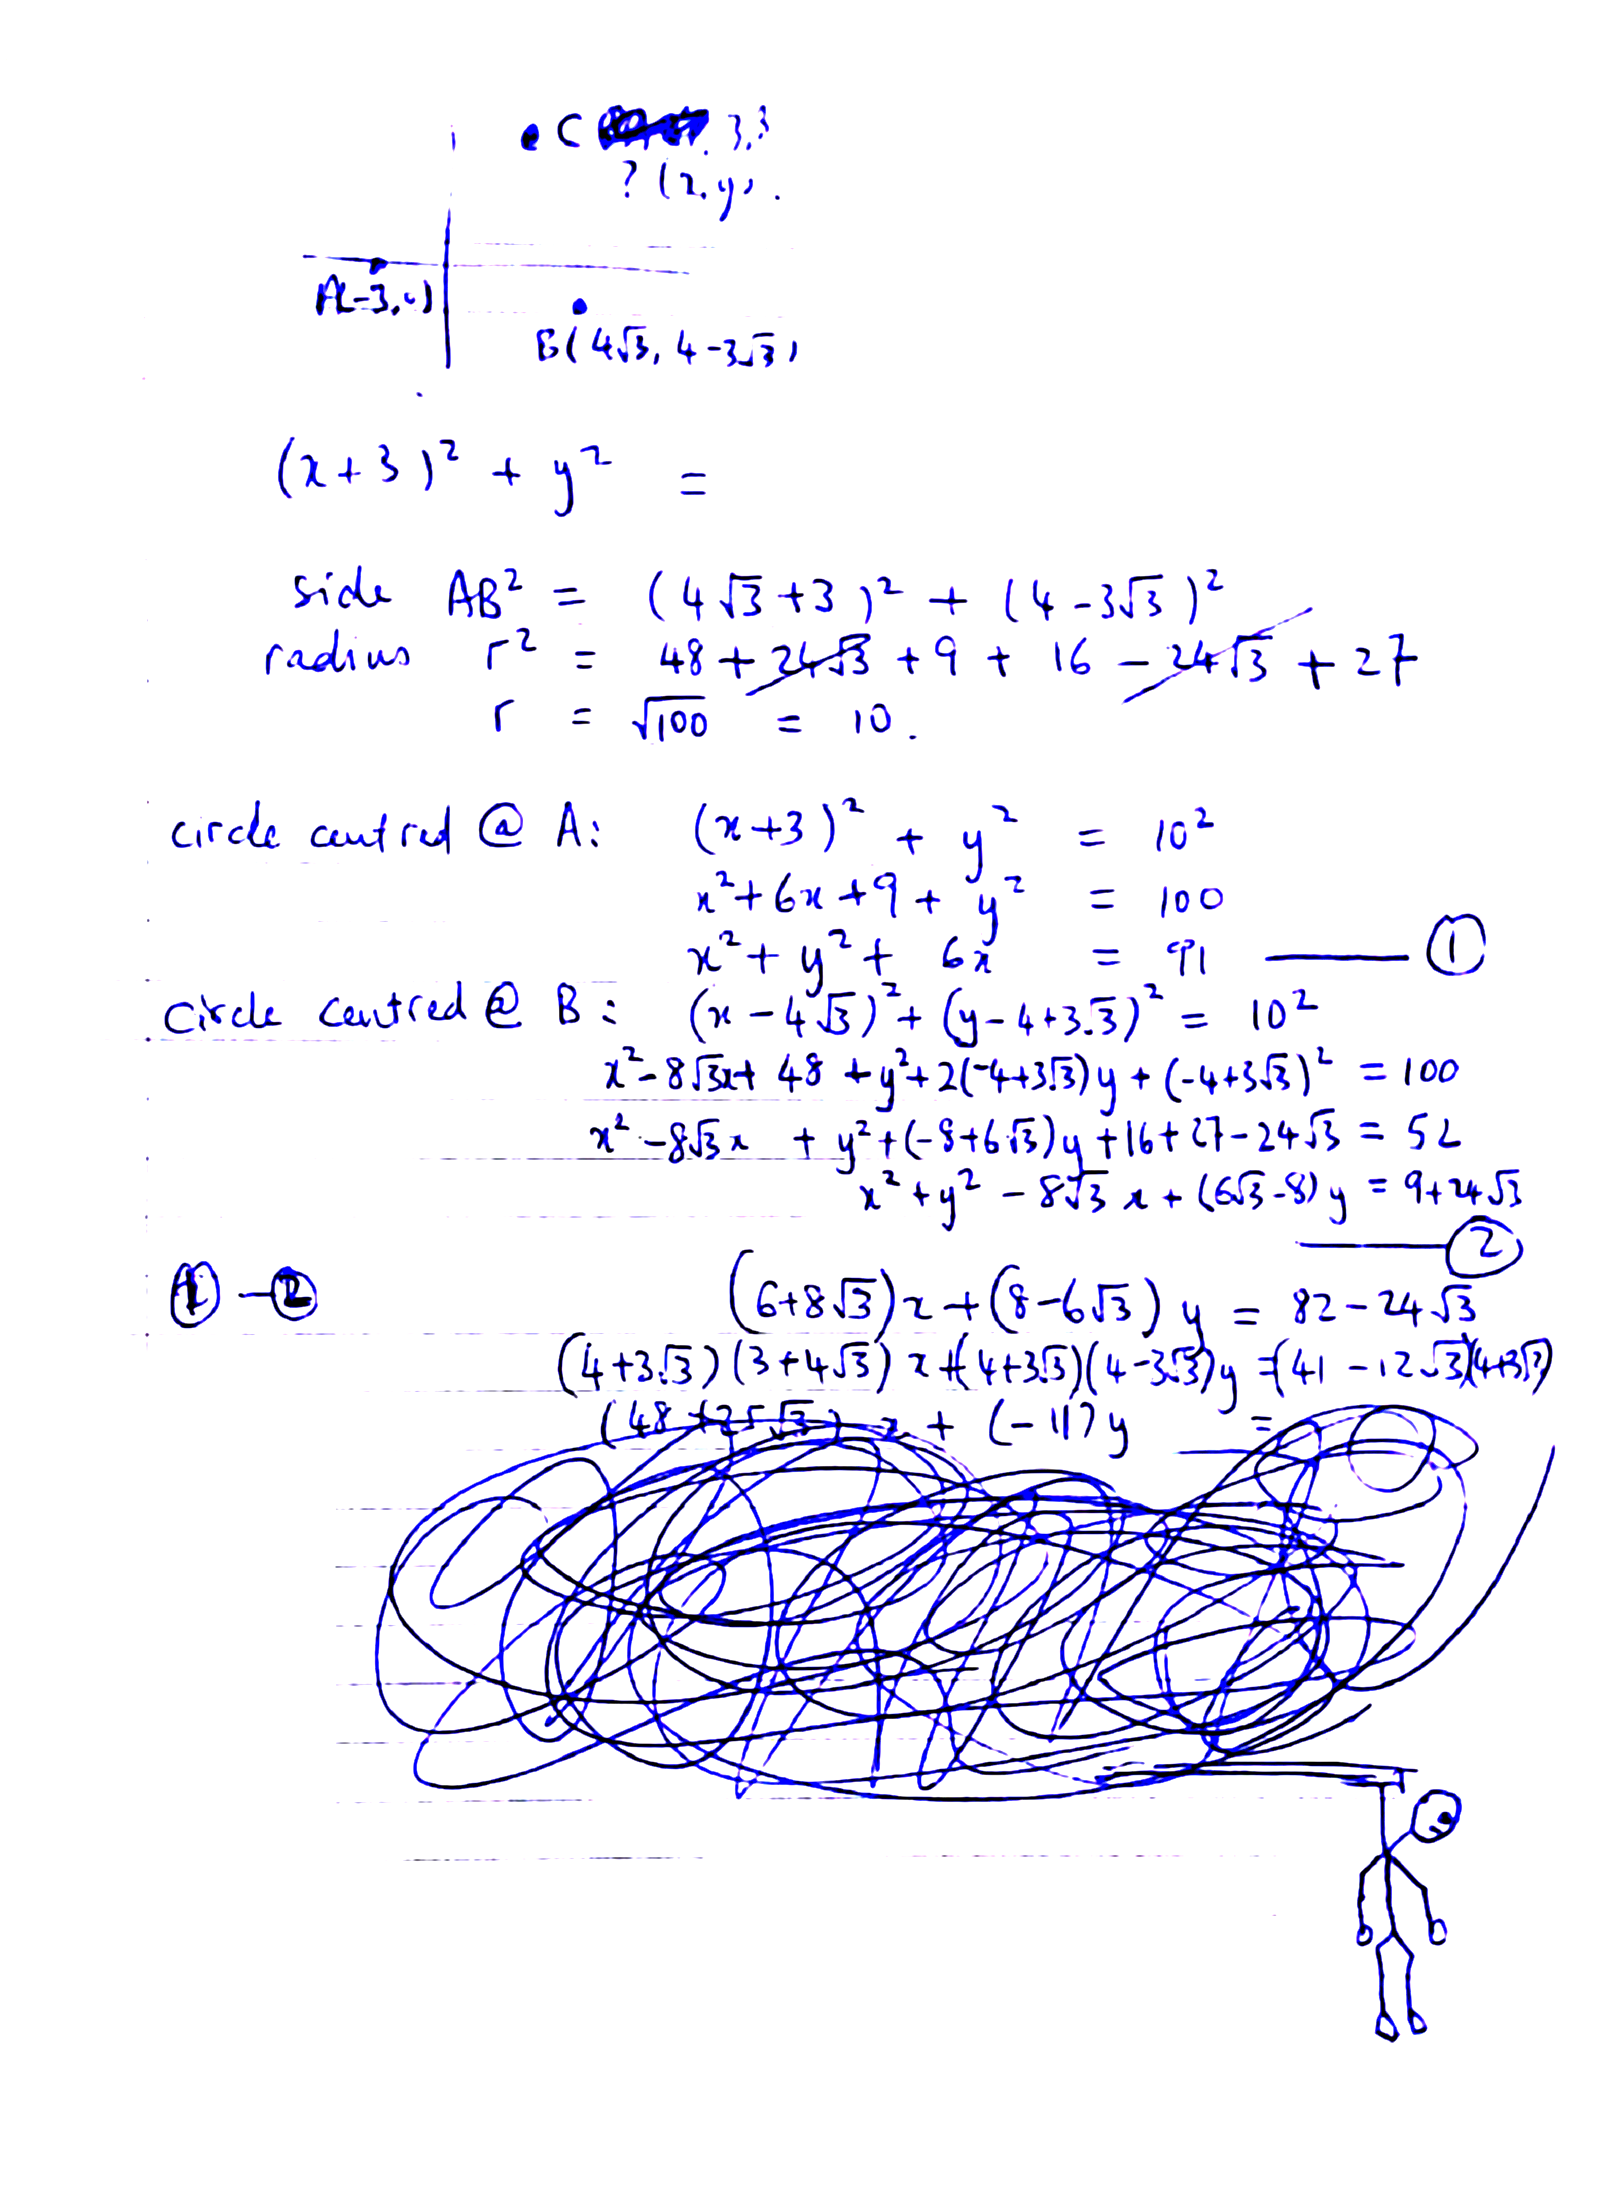 C 3,3
? (x, y).
A(-3,0)
B(4√3, 4-3√3)
(x+3)² + y² =
side AB² = (4√3+3)² + (4-3√3)²
radius r² = 48 + 24√3 + 9 + 16 - 24√3 + 27
r = √100 = 10.
circle centred @ A: (x+3)² + y² = 10²
x² + 6x + 9 + y² = 100
x² + y² + 6x = 91 —— ①
circle centred @ B: (x-4√3)² + (y-4+3√3)² = 10²
x² - 8√3x + 48 + y² + 2(-4+3√3)y + (-4+3√3)² = 100
x² - 8√3x + y² + (-8+6√3)y + 16 + 27 - 24√3 = 52
x² + y² - 8√3 x + (6√3-8)y = 9+24√3
—— ②
① - ② (6+8√3)x + (8-6√3)y = 82-24√3
(4+3√3)(3+4√3)x + (4+3√3)(4-3√3)y = (41-12√3)(4+3√3)
(48+25√3)x + (-11)y =